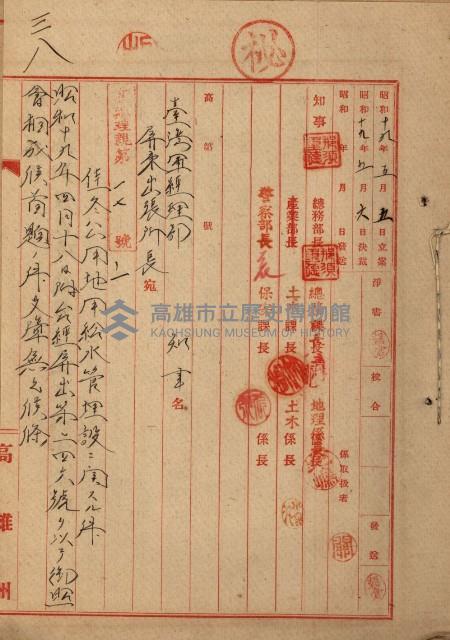 三八
秘
昭和十九年五月五日立案
昭和十九年五月六日決裁
昭和 年 月 日發送
淨書
校合
發送
係取扱者
知事
總務部長
總務課長
地理係長
產業部長
土木課長
土木係長
警察部長
保安課長
係長
高 第 號
地理親第一七號ノ一
臺灣軍經理部
屏東出張所長 宛
知事名
佳冬公用地用給水管埋設ニ関スル件
昭和十九年四月十八日附台經屏出第二四六號ヲ以テ御照
會相成候首題ノ件支障無之候條
高雄州
高雄市立歷史博物館
KAOHSIUNG MUSEUM OF HISTORY